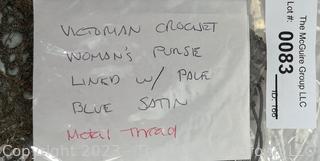 VICTORIAN CROCHET
WOMAN'S PURSE
LINED W/ PALE
BLUE SATIN
Metal Thread
The McGuire Group LLC
Lot #:
0083
ID: 166